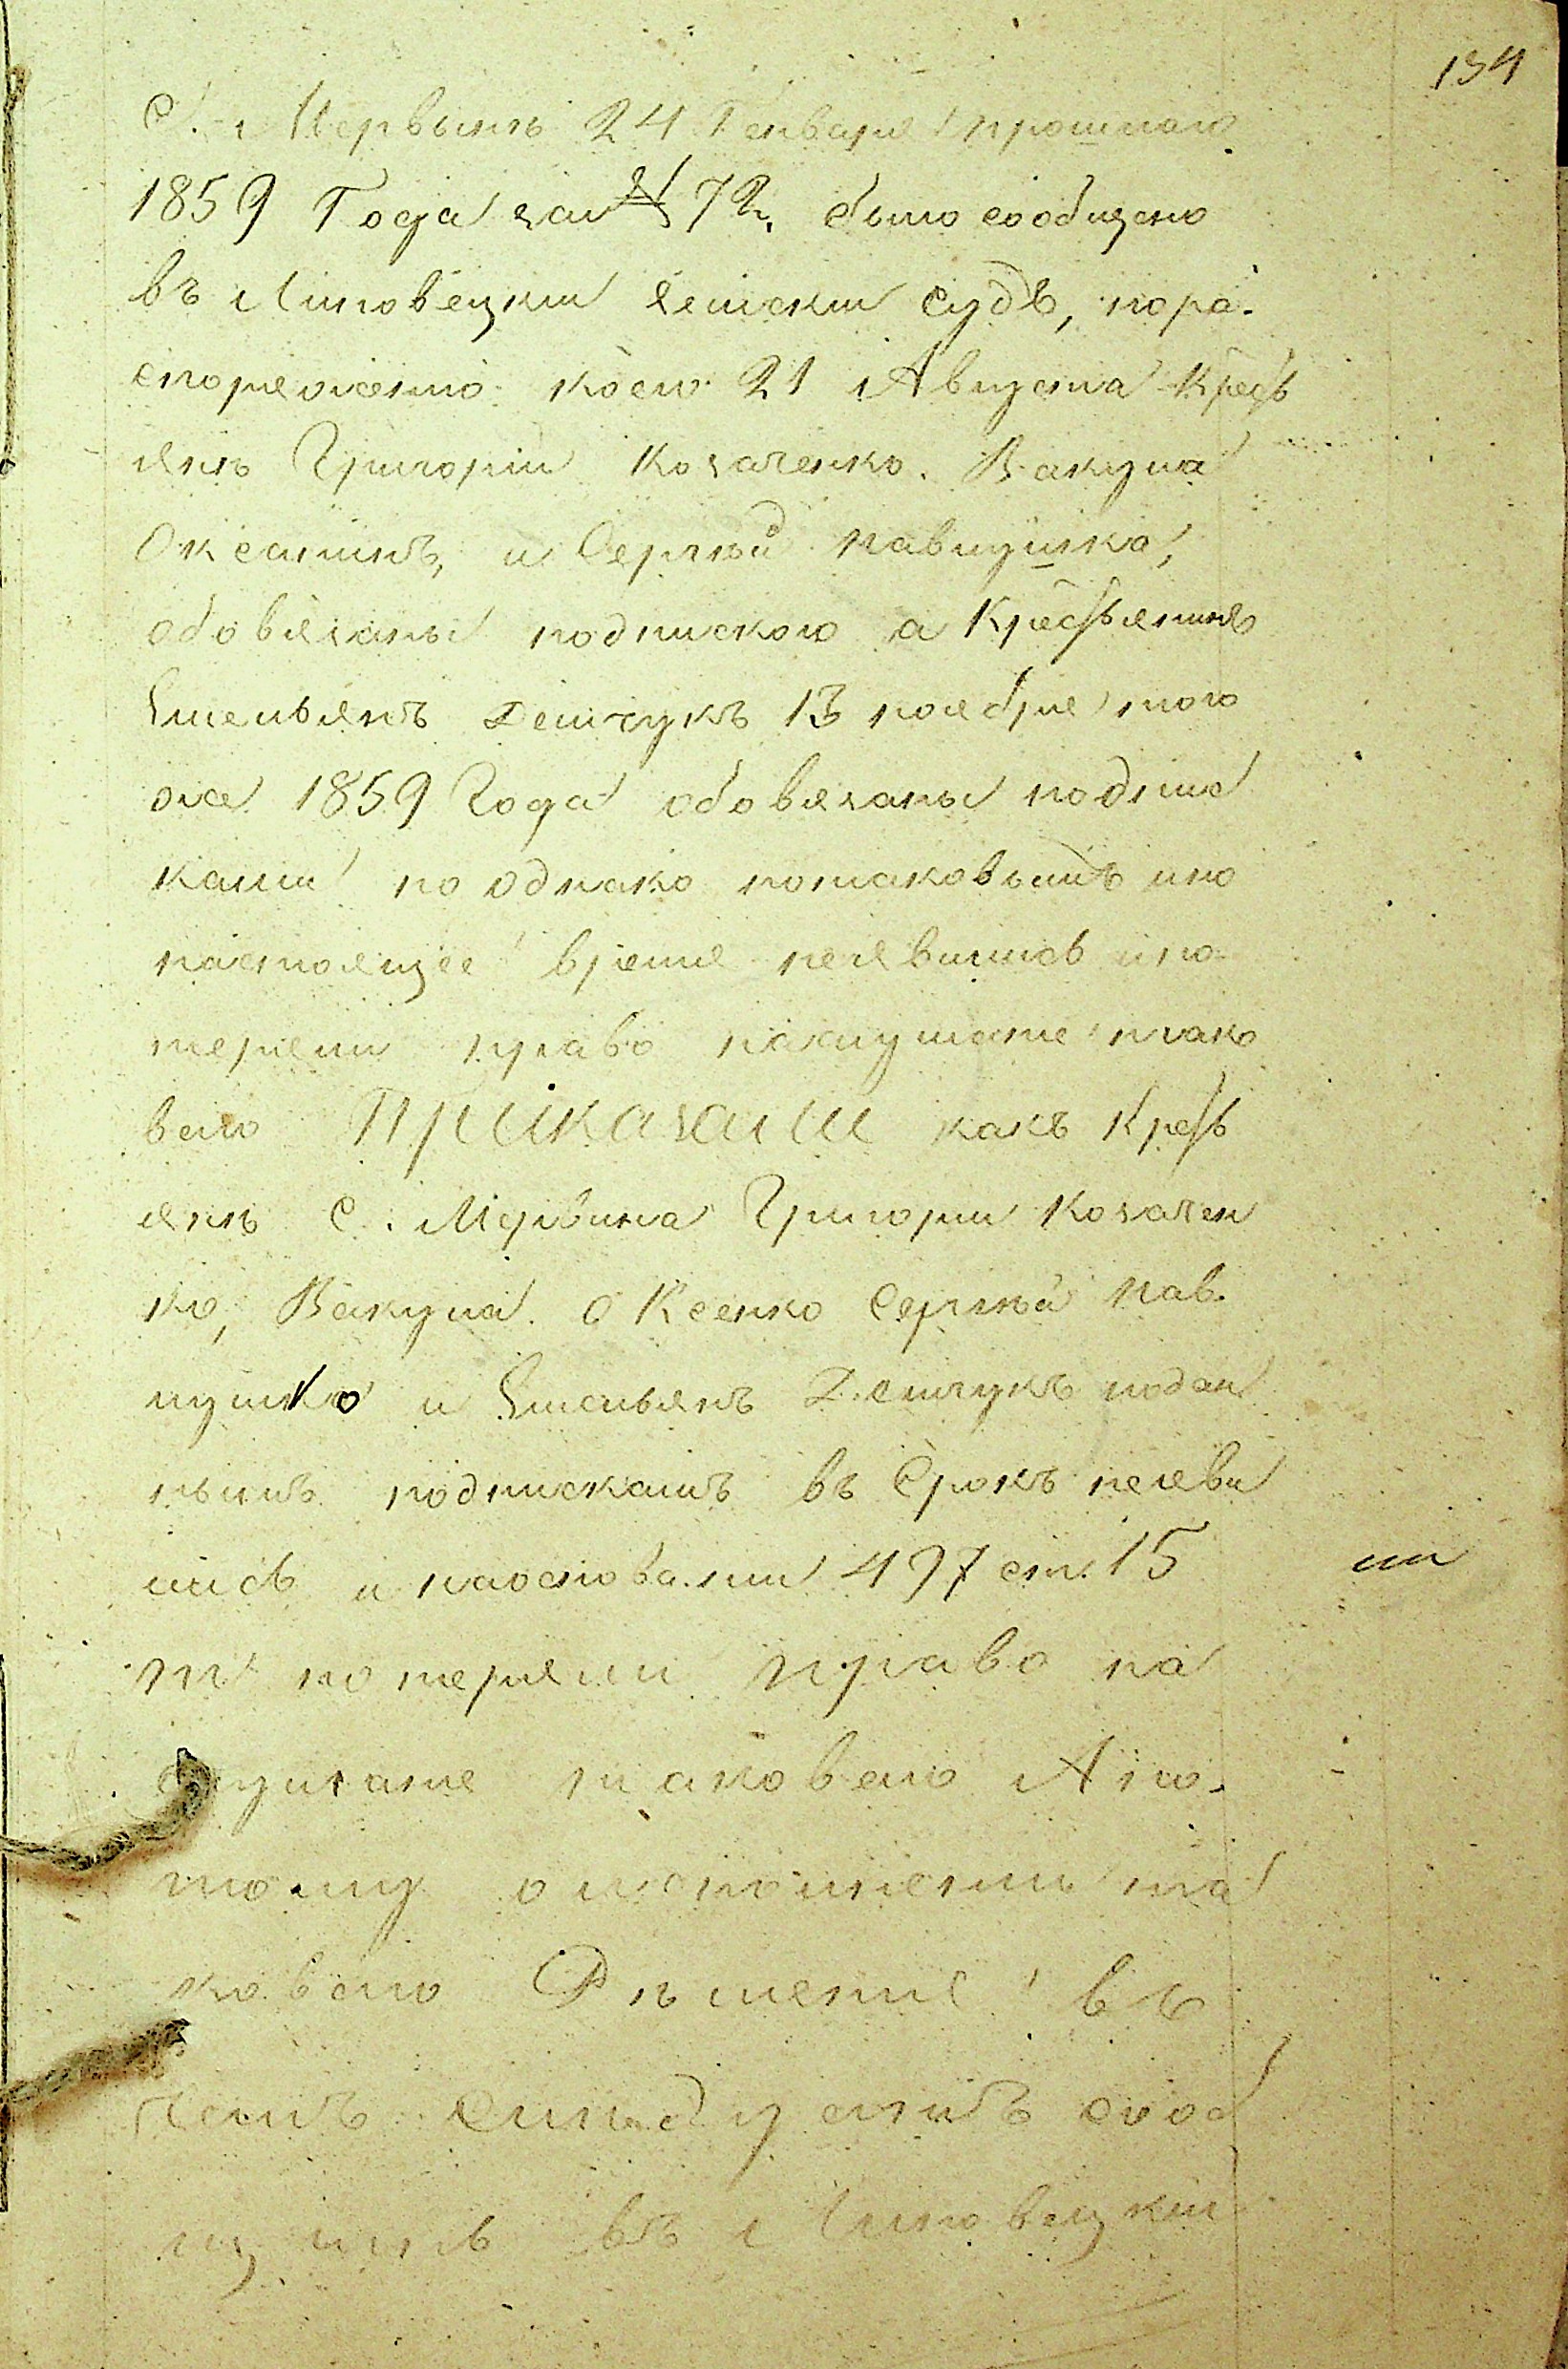 134
С. Мервынъ 24 Генваря прошлаго
1859 Года за № 72, было сообщено
въ Липовецкии Земскии Судъ, пора-
споряжению коего 21 Августа Кресть
янъ Григории Козаченко. Вакула
Оксанинъ, и Сергѣй Павлушко,
обовязаны подпискою а Крестьянинъ
Емельянъ Демчукъ 13 ноября того
же 1859 Года обовязаны подпис
ками но однако потаковымъ ино
настоящее время неявились ипо
теряли право наслушание тако
ваго Приказали какъ Кресть
янъ С. Мервина Григории Козачен
ко, Вакула Оксенко Сергѣй Пав-
лушко и Емельянъ Демчукъ подан
нымъ подпискамъ въ Срокъ неяви
лись и наосновании 497 ст. 15
ли
т. потеряли право на
слушание таковаго А по-
тому о исполнении та
коваго Рѣшения въ
чемъ слѣдуетъ сооб
щить въ Липовецкии